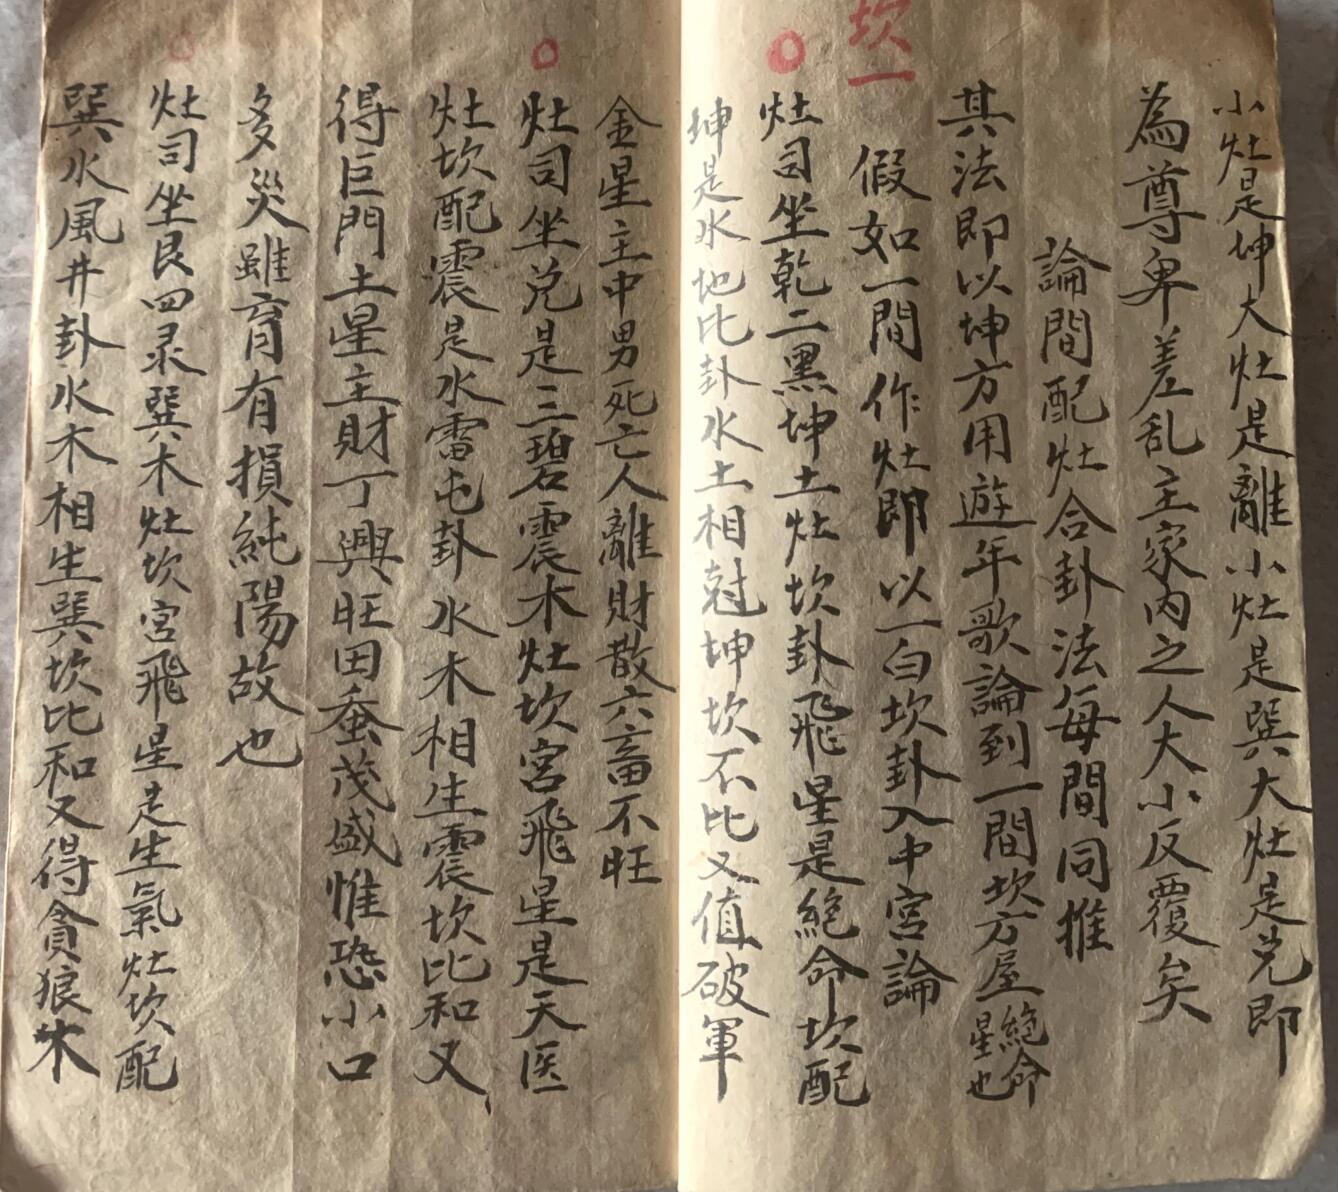 小灶是坤大灶是離小灶是巽大灶是兑即
為尊卑差乱主家內之人大小反覆矣
論間配灶合卦法每間同推
其法即以坤方用遊年歌論到一間坎方屋絕命星也
坎一
假如一間作灶即以一白坎卦入中宮論
灶司坐乾二黑坤土灶坎卦飛星是絕命坎配
坤是水地比卦水土相尅坤坎不比又值破軍
金星主中男死亡人離財散六畜不旺
灶司坐兑是三碧震木灶坎宮飛星是天医
灶坎配震是水雷屯卦水木相生震坎比和又
得巨門土星主財丁興旺田蚕茂盛惟恐小口
多災雖育有損純陽故也
灶司坐艮四录巽木灶坎宮飛星是生氣灶坎配
巽水風井卦水木相生巽坎比和又得貪狼木